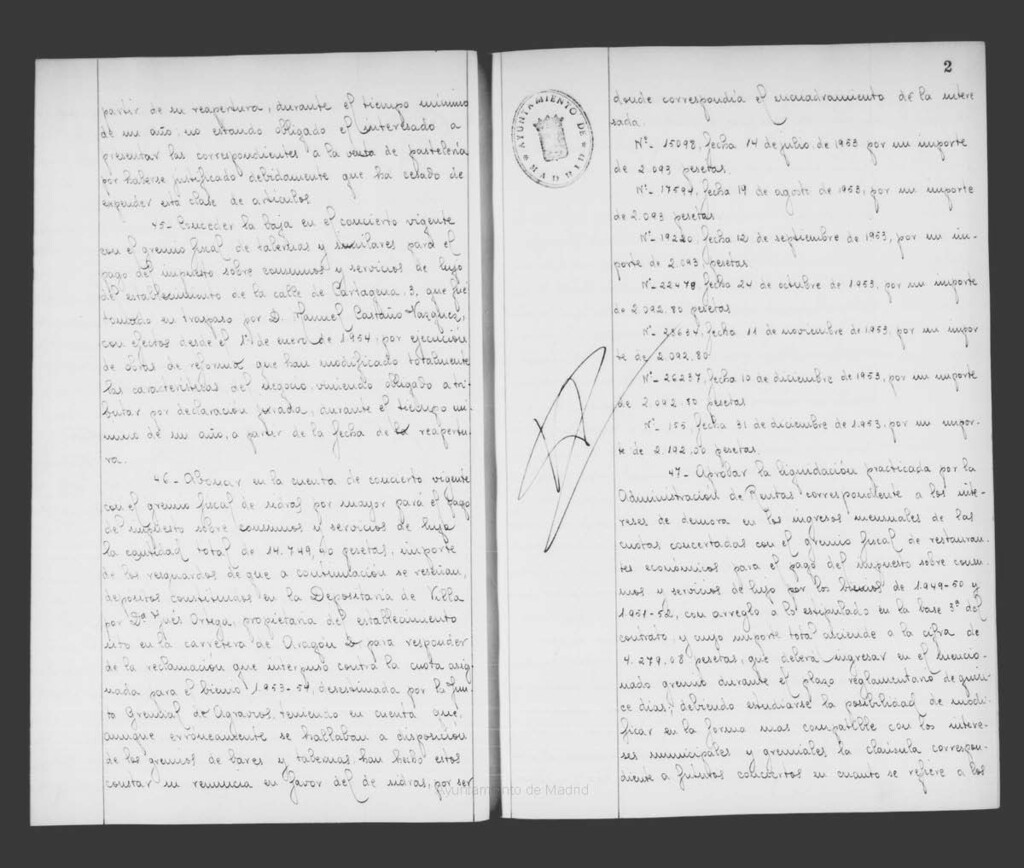 partir de su reapertura, durante el tiempo mínimo
de un año, no estando obligado el interesado a
presentar las correspondientes a la venta de pastelería
por haberse justificado debidamente que ha cesado de
expender esta clase de artículos.
45.- Conceder la baja en el concierto vigente
con el gremio fiscal de tabernas y similares para el
pago del impuesto sobre consumos y servicios de lujo
del establecimiento de la calle de Cartagena, 3, que fué
tomado en traspaso por D. Manuel Castaño Vázquez,
con efectos desde el 1º de enero de 1.954, por ejecución
de obras de reforma que han modificado totalmente
las características del negocio, viniendo obligado a tri-
butar por declaración jurada, durante el tiempo mí-
nimo de un año, a partir de la fecha de la reapertu-
ra.
46.- Abonar en la cuenta de concierto vigente
con el gremio fiscal de sidras por mayor para el pago
del impuesto sobre consumos y servicios de lujo
la cantidad total de 14.749,40 pesetas, importe
de los resguardos de que a continuación se reseñan,
depósitos constituidos en la Depositaría de Villa
por Dª Inés Ortega, propietaria del establecimiento
sito en la carretera de Aragón para responder
de la reclamación que interpuso contra la cuota asig-
nada para el bienio 1.953-54, desestimada por la Jun-
ta Gremial de Agravios, teniendo en cuenta que,
aunque erróneamente se hallaban a disposición
de los gremios de bares y tabernas, han hecho estos
constar su renuncia en favor del de sidras, por ser
Ayuntamiento de Madrid
2
AYUNTAMIENTO DE MADRID
donde correspondía el encuadramiento de la intere-
sada.
Nº- 15098, fecha 14 de julio de 1953 por un importe
de 2.093 pesetas.
Nº- 17594, fecha 19 de agosto de 1953, por un importe
de 2.093 pesetas.
Nº- 19220, fecha 12 de septiembre de 1953, por un im-
porte de 2.093 pesetas.
Nº- 22478 fecha 24 de octubre de 1953, por un importe
de 2.092,80 pesetas
Nº- fecha 11 de noviembre de 1953, por un impor-
te de 2.092,80
Nº- 26237, fecha 10 de diciembre de 1953, por un importe
de 2.092,80 pesetas
Nº- 155 fecha 31 de diciembre de 1.953, por un impor-
te de 2.192,00 pesetas.
47.- Aprobar la liquidación practicada por la
Administración de Rentas correspondiente a los inte-
reses de demora en los ingresos mensuales de las
cuotas concertadas con el gremio fiscal de restauran-
tes económicos para el pago del impuesto sobre consu-
mos y servicios de lujo por los bienios de 1.949-50 y
1.951-52, con arreglo a lo estipulado en la base 3ª del
contrato, y cuyo importe total asciende a la cifra de
4.279,08 pesetas, que deberá ingresar en el mencio-
nado gremio durante el plazo reglamentario de quin-
ce días, debiendo estudiarse la posibilidad de modi-
ficar en la forma mas compatible con los intere-
ses municipales y gremiales la cláusula correspon-
diente a futuros conciertos en cuanto se refiere a los